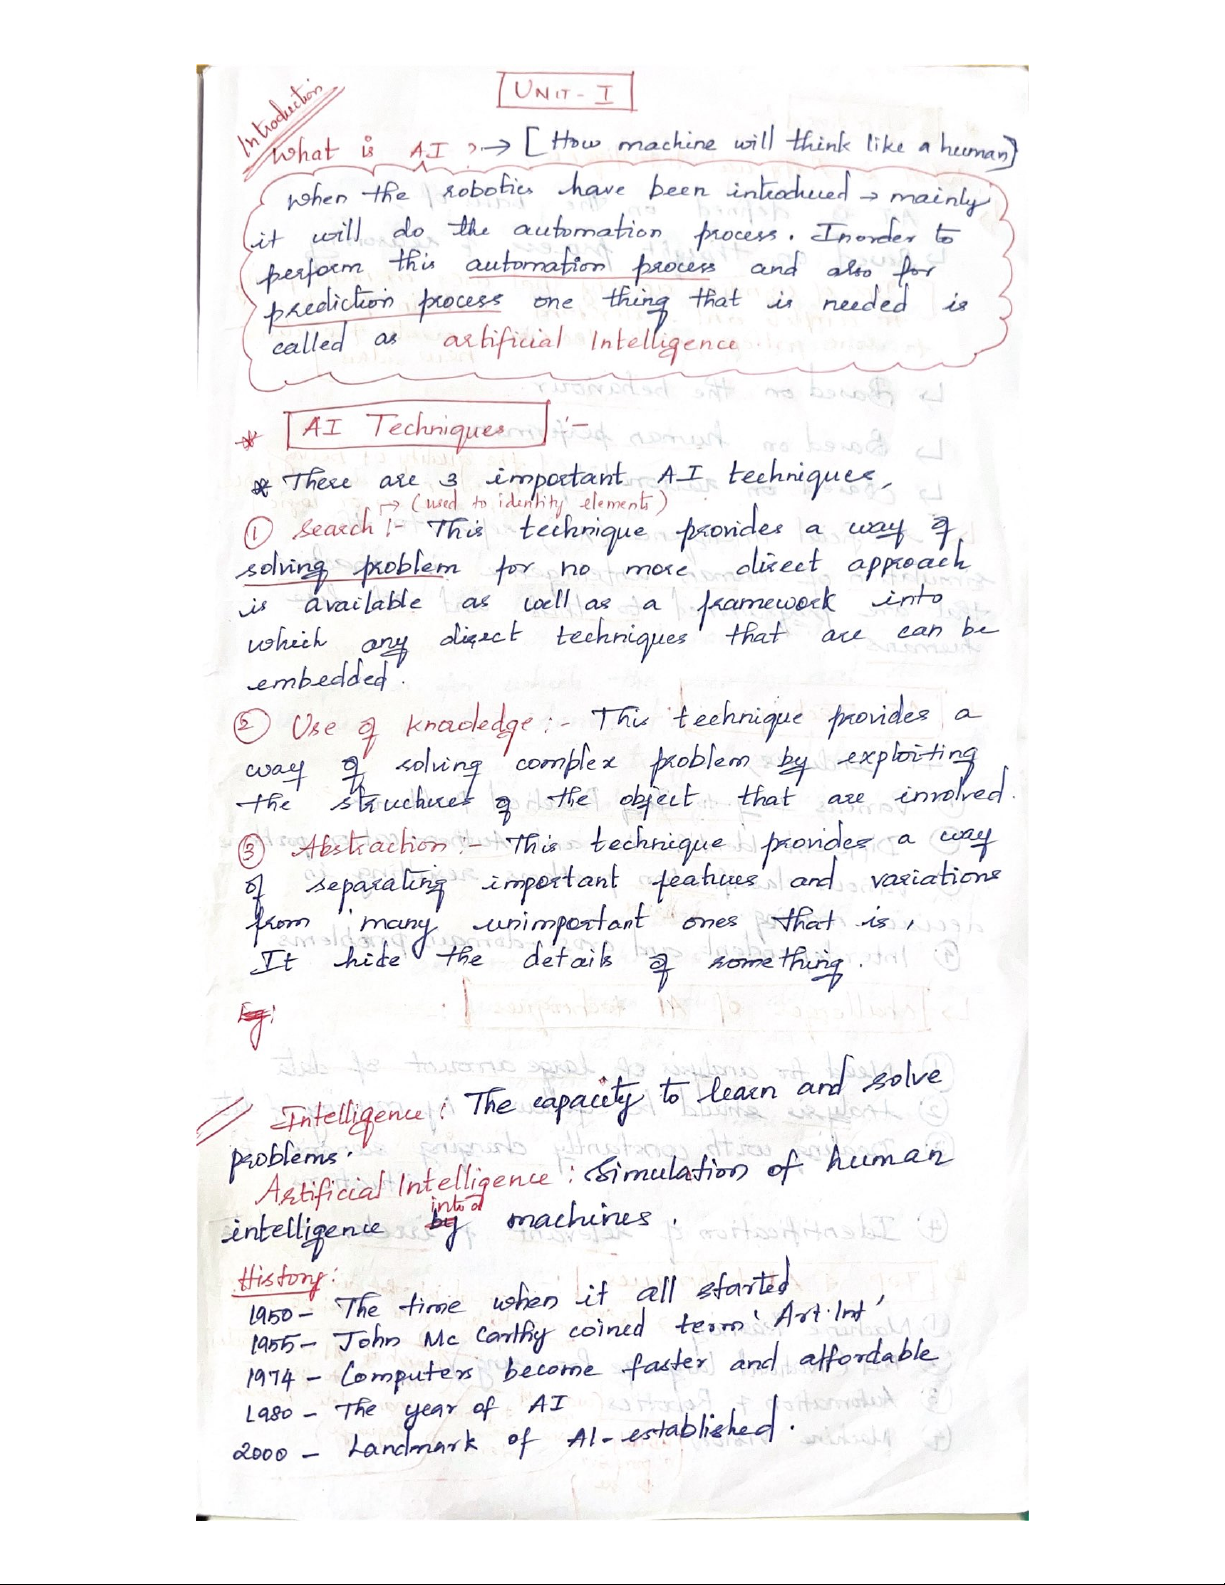 Introduction
UNIT - I
What is AI ? → [How machine will think like a human]
When the robotics have been introduced → mainly
it will do the automation process. Inorder to
perform this automation process and also for
prediction process one thing that is needed is
called as artificial Intelligence
* AI Techniques :-
* There are 3 important AI techniques,
→ (used to identity elements)
① Search :- This technique provides a way of
solving problem for no more direct approach
is available as well as a framework into
which any direct techniques that are can be
embedded.
② Use of knowledge :- This technique provides a
way of solving complex problem by exploiting
the structures of the object that are involved.
③ Abstraction :- This technique provides a way
of separating important features and variations
from many unimportant ones that is,
It hide the details of something.
Eg:
Intelligence : The capacity to learn and solve
problems.
Artificial Intelligence : Simulation of human
into a
intelligence by machines.
History:
1950 - The time when it all started
1955 - John Mc Carthy coined term 'Art.Int'
1974 - Computers become faster and affordable
1980 - The year of AI
2000 - Landmark of AI - established.